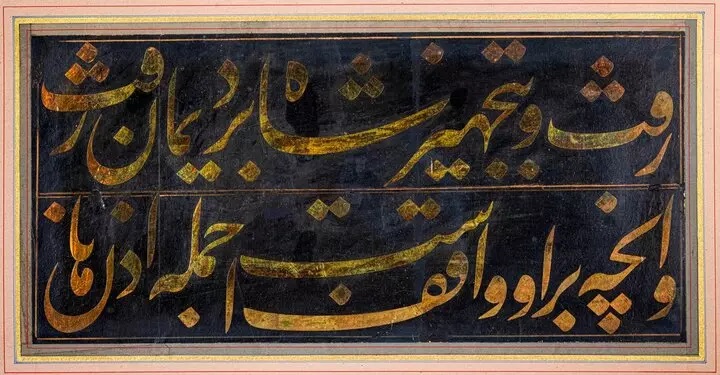 رفت و بتجهیز شاه برد یمان رفت
وانچه براو واقف است جمله اذن